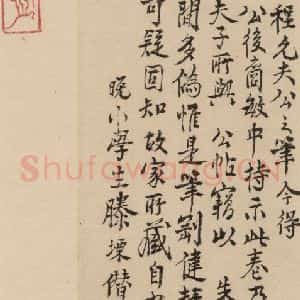 程允夫公之筆今得
公後裔敏中持示此卷乃
夫子所與 公帖竊以 朱
間多偽惟是筆勁健
可疑固知故家所藏自
晚小學生滕塛僭
Shufawang.CN